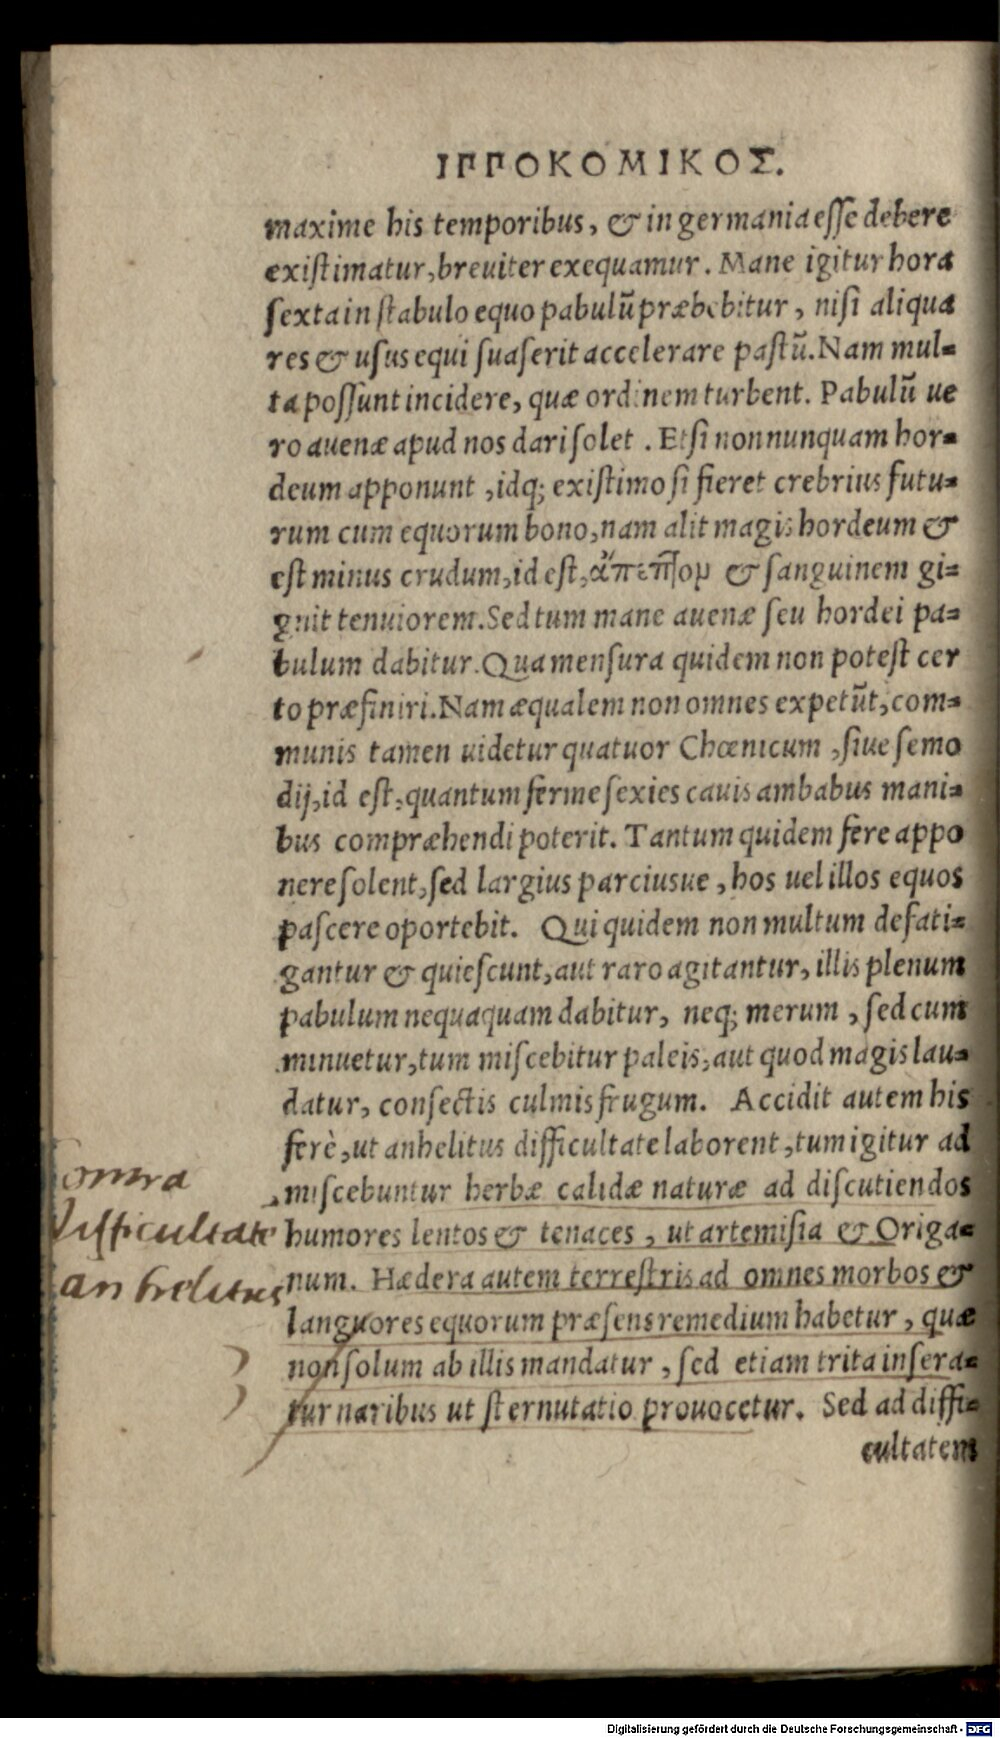 ΙΠΠΟΚΟΜΙΚΟΣ.
maxime his temporibus, & in germania eſſe debere
exiſtimatur, breuiter exequamur. Mane igitur hora
ſexta in ſtabulo equo pabulũ præbebitur, niſi aliqua
res & uſus equi ſuaſerit accelerare paſtũ. Nam mul=
ta poſſunt incidere, quæ ordinem turbent. Pabulũ ue
ro auenæ apud nos dari ſolet. Etſi nonnunquam hor=
deum apponunt, idq; exiſtimo ſi fieret crebrius futu=
rum cum equorum bono, nam alit magis hordeum &
eſt minus crudum, id eſt, & ſanguinem gi=
gnit tenuiorem. Sed tum mane auenæ ſeu hordei pa=
bulum dabitur. Qua menſura quidem non poteſt cer
to præfiniri. Nam æqualem non omnes expetũt, com=
munis tamen uidetur quatuor Chœnicum, ſiue ſemo
dij, id eſt, quantum ferme ſexies cauis ambabus mani=
bus compræhendi poterit. Tantum quidem fere appo
nere ſolent, ſed largius parciusue, hos uel illos equos
paſcere oportebit. Qui quidem non multum defati=
gantur & quieſcunt, aut raro agitantur, illis plenum
pabulum nequaquam dabitur, neq; merum, ſed cum
minuetur, tum miſcebitur paleis, aut quod magis lau=
datur, conſectis culmis frugum. Accidit autem his
ferè, ut anhelitus difficultate laborent, tum igitur ad
miſcebuntur herbæ calidæ naturæ ad diſcutiendos
humores lentos & tenaces, ut artemiſia & Origa=
num. Hædera autem terreſtris ad omnes morbos &
languores equorum præſens remedium habetur, quæ
non ſolum ab illis mandatur, ſed etiam trita inſera=
tur naribus ut ſternutatio prouocetur. Sed ad diffi=
cultatem
contra
difficultatē
anhelitus
Digitalisierung gefördert durch die Deutsche Forschungsgemeinschaft - DFG